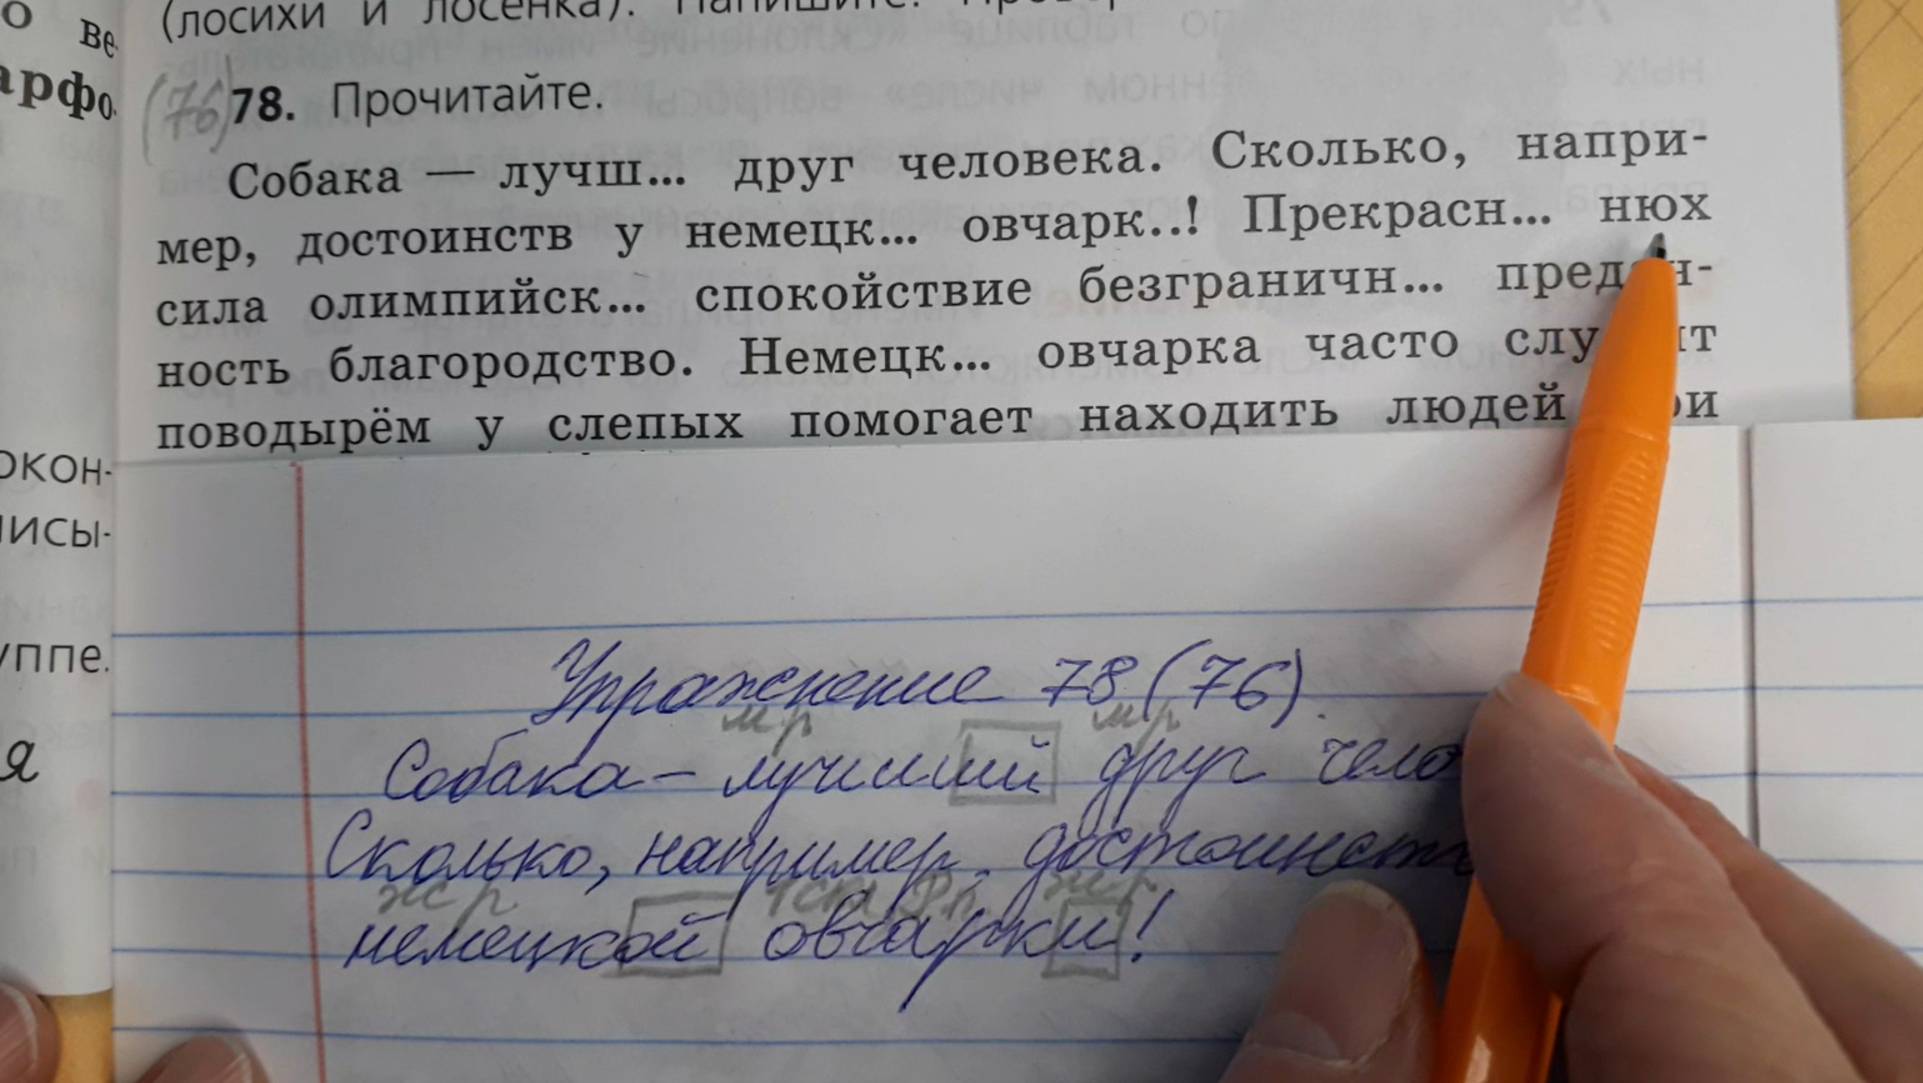 о ве
арфо
окон-
писы-
уппе.
я
(лосихи и лосёнка). Напишите.
(76) 78. Прочитайте.
Собака — лучш... друг человека. Сколько, напри-
мер, достоинств у немецк... овчарк..! Прекрасн... нюх
сила олимпийск... спокойствие безграничн... предан-
ность благородство. Немецк... овчарка часто служит
поводырём у слепых помогает находить людей при
Упражнение 78 (76).
мр мр
Собака – лучший друг чело
Сколько, например, достоинств
жр 1скл Р.п. жр
немецкой овчарки!